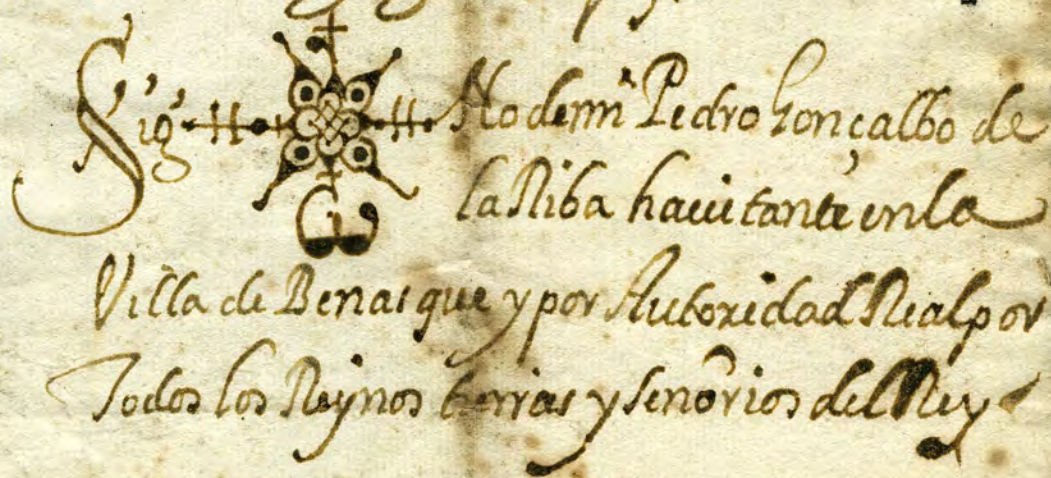 Sig no de mi Pedro Gonçalbo de
la Riba hauitante en la
Villa de Benasque y por Autoridad Real por
Todos los Reynos tierras y señorios del Rey